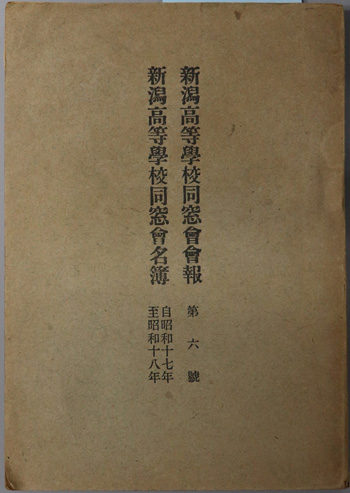 新潟高等學校同窓會會報 第六號
新潟高等學校同窓會名簿 自昭和十七年
至昭和十八年